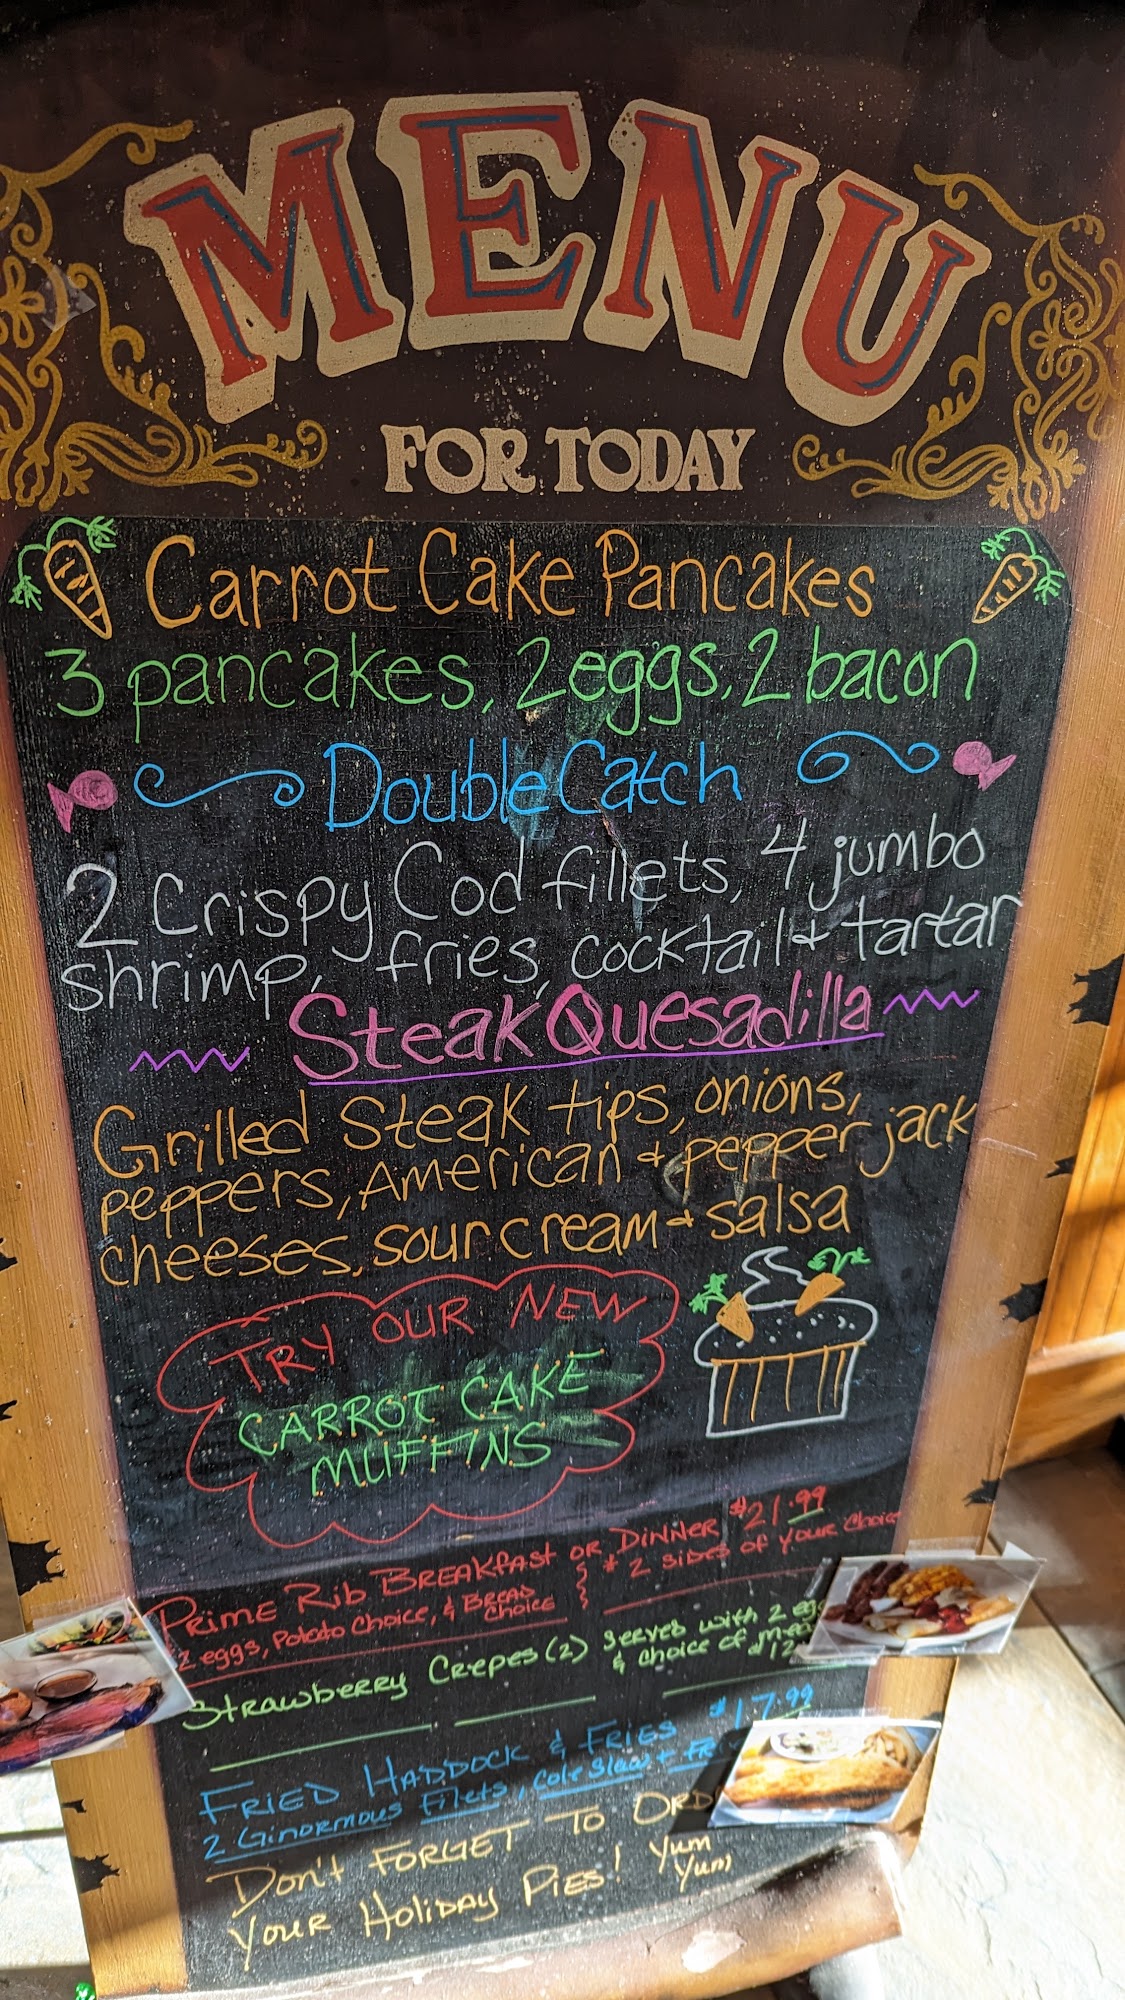 MENU
FOR TODAY
Carrot Cake Pancakes
3 pancakes, 2 eggs, 2 bacon
Double Catch
2 Crispy Cod fillets, 4 jumbo
shrimp, fries, cocktail + tartar
Steak Quesadilla
Grilled Steak tips, onions,
peppers, American + pepper jack
cheeses, sour cream + salsa
TRY OUR NEW
CARROT CAKE
MUFFINS
PRIME RIB BREAKFAST OR DINNER $21.99
2 eggs, Potato Choice, & BREAD CHOICE
* 2 SIDES OF YOUR CHOICE
STRAWBERRY CREPES (2) SERVED WITH 2
& CHOICE OF
FRIED HADDOCK & FRIES $17.99
2 GINORMOUS FILETS, Cole Slaw +
DON'T FORGET TO
YOUR HOLIDAY PIES! YUM
YUM